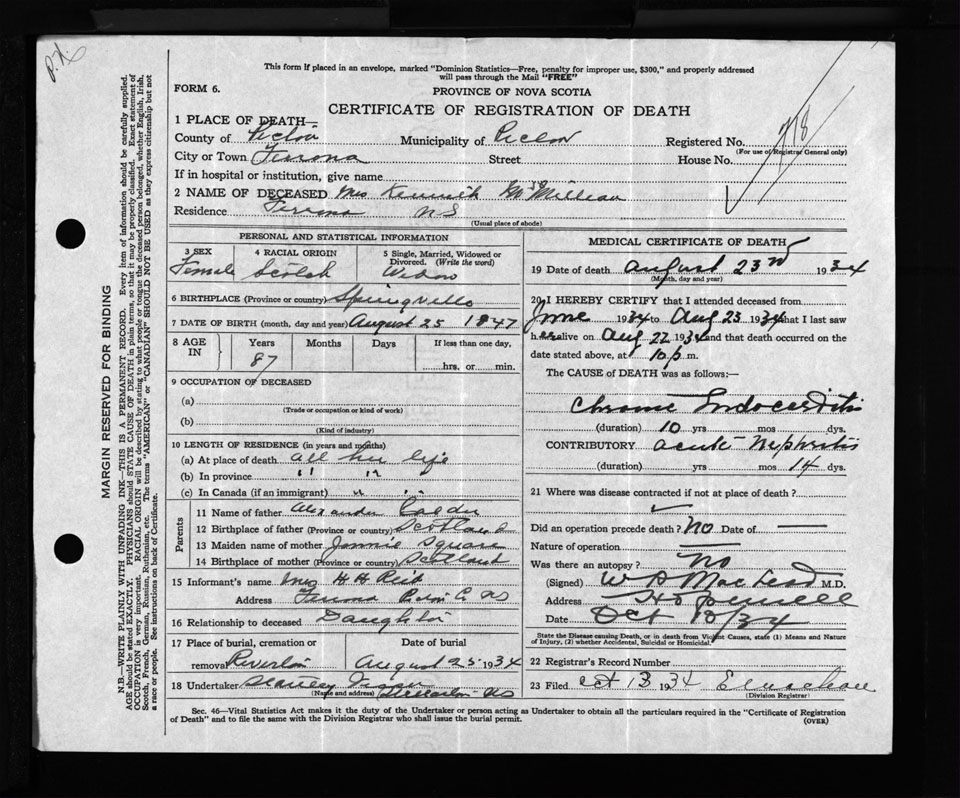 P.H.
This form if placed in an envelope, marked "Dominion Statistics—Free, penalty for improper use, $300," and properly addressed
will pass through the Mail "FREE"
FORM 6.
PROVINCE OF NOVA SCOTIA
CERTIFICATE OF REGISTRATION OF DEATH
1 PLACE OF DEATH—
County of Pictou Municipality of Pictou Registered No. 718
(For use of Registrar General only)
City or Town Ferrona Street House No.
If in hospital or institution, give name
2 NAME OF DECEASED Mrs Kenneth McMillan
Residence Ferrona N S
(Usual place of abode)
PERSONAL AND STATISTICAL INFORMATION
3 SEX 4 RACIAL ORIGIN 5 Single, Married, Widowed or Divorced. (Write the word)
Female Scotch Widow
6 BIRTHPLACE (Province or country) Springville
7 DATE OF BIRTH (month, day and year) August 25 1847
8 AGE IN Years Months Days If less than one day,
87 hrs. or min.
9 OCCUPATION OF DECEASED
(a)
(Trade or occupation or kind of work)
(b)
(Kind of industry)
10 LENGTH OF RESIDENCE (in years and months)
(a) At place of death all her life
(b) In province " "
(c) In Canada (if an immigrant) " "
Parents
11 Name of father Alexander
12 Birthplace of father (Province or country) Scotland
13 Maiden name of mother Jennie Square
14 Birthplace of mother (Province or country) Scotland
15 Informant's name Mrs H H Reid
Address Ferrona Pictou C. NS
16 Relationship to deceased Daughter
17 Place of burial, cremation or removal Riverton Date of burial August 25 1934
18 Undertaker Stanley
(Name and address) Stellarton NS
MEDICAL CERTIFICATE OF DEATH
19 Date of death August 23rd 1934
(Month, day and year)
20 I HEREBY CERTIFY that I attended deceased from
June 1934 to Aug 23 1934 that I last saw
her alive on Aug 22 1934 and that death occurred on the
date stated above, at 10 p. m.
The CAUSE of DEATH was as follows:—
Chronic Endocarditis
(duration) 10 yrs mos dys.
CONTRIBUTORY acute Nephritis
(duration) yrs mos 14 dys.
21 Where was disease contracted if not at place of death?
Did an operation precede death? No Date of —
Nature of operation —
Was there an autopsy? No
(Signed) W A MacLeod M.D.
Address Hopewell
Date Oct 10/34
State the Disease causing Death, or in death from Violent Causes, state (1) Means and Nature
of Injury, (2) whether Accidental, Suicidal or Homicidal.
22 Registrar's Record Number
23 Filed Oct 13 1934
(Division Registrar)
Sec. 46—Vital Statistics Act makes it the duty of the Undertaker or person acting as Undertaker to obtain all the particulars required in the "Certificate of Registration
of Death" and to file the same with the Division Registrar who shall issue the burial permit.
(OVER)
MARGIN RESERVED FOR BINDING
N.B.—WRITE PLAINLY WITH UNFADING INK—THIS IS A PERMANENT RECORD. Every item of information should be carefully supplied.
AGE should be stated EXACTLY. PHYSICIANS should STATE CAUSE OF DEATH in plain terms, so that it may be properly classified. Exact statement of
OCCUPATION is very important. RACIAL ORIGIN will be described by stating to what people or tongue the deceased person belonged, whether English, Irish,
Scotch, French, German, Russian, Ruthenian, etc. The terms "AMERICAN" or "CANADIAN" SHOULD NOT BE USED as they express citizenship but not
a race or people. See instructions on back of Certificate.